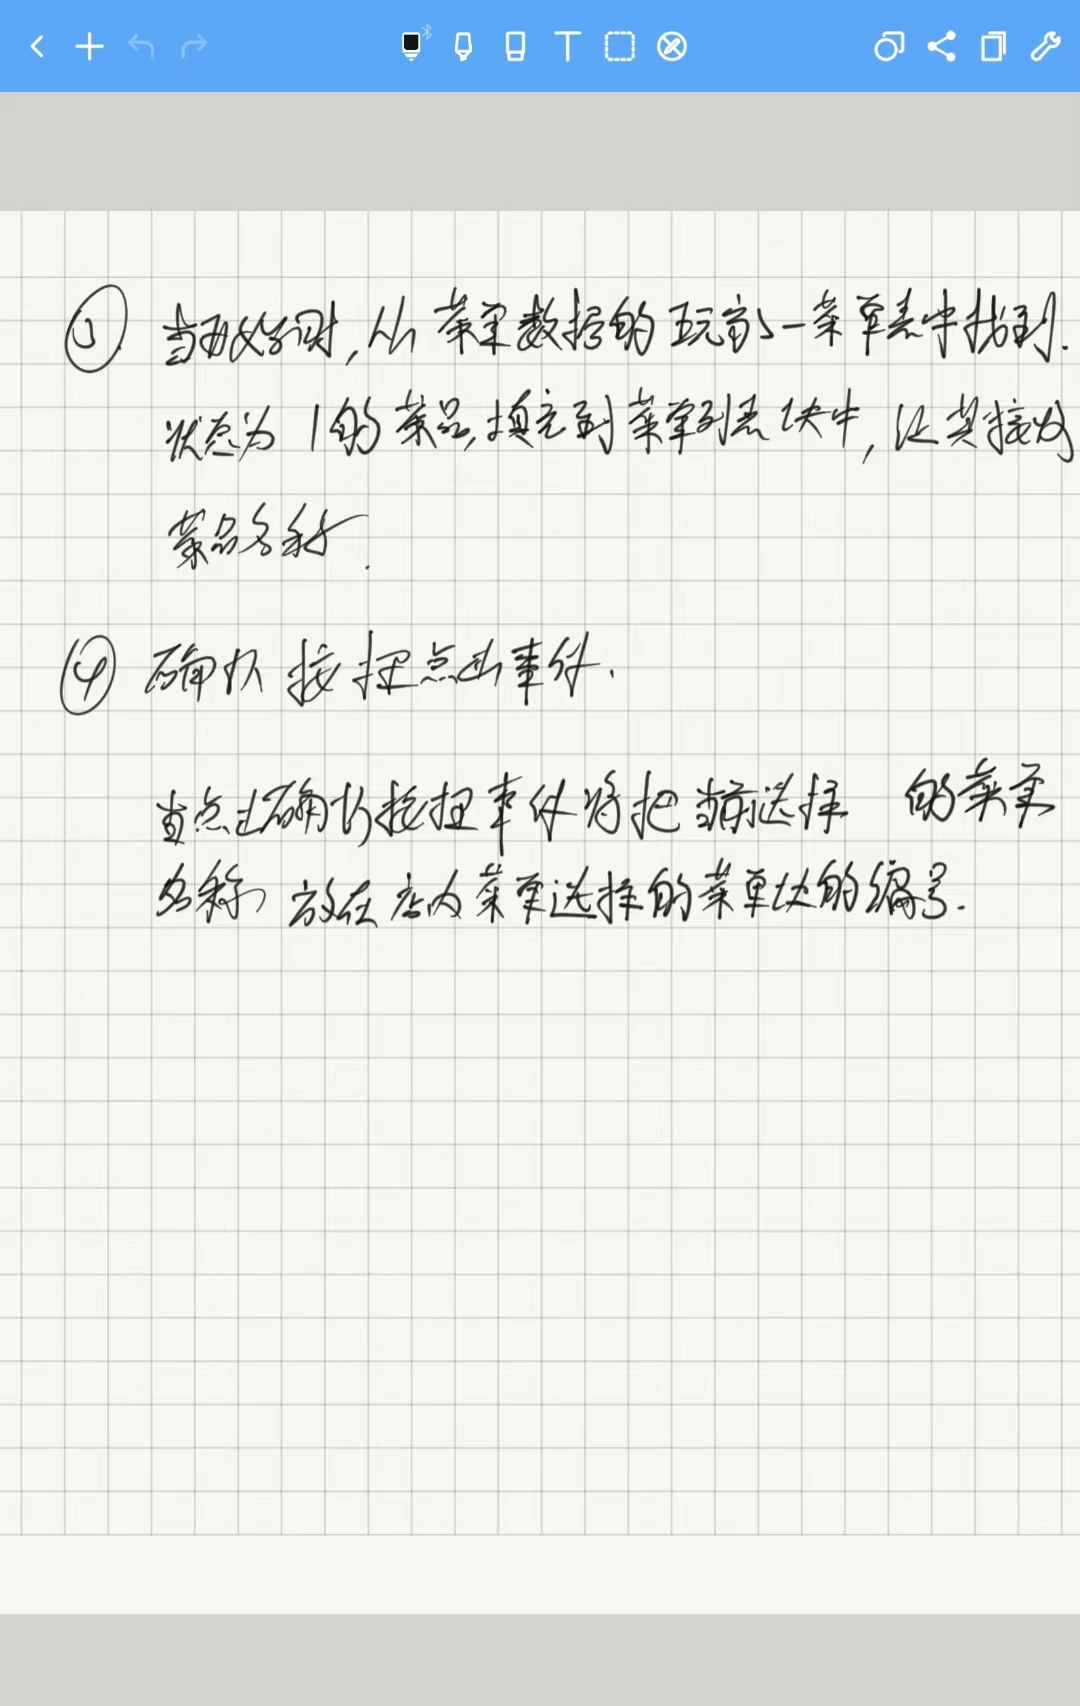 ③ 当开始时,从菜单数据的玩家-菜单表中找到.
状态为1的菜品,填充到菜单列表块中,让其接收
菜品名称.
④ 确认按扭点击事件.
当点击确认按扭事件将把当前选择 的菜单
名称 放在店内菜单选择的菜单块的编号.